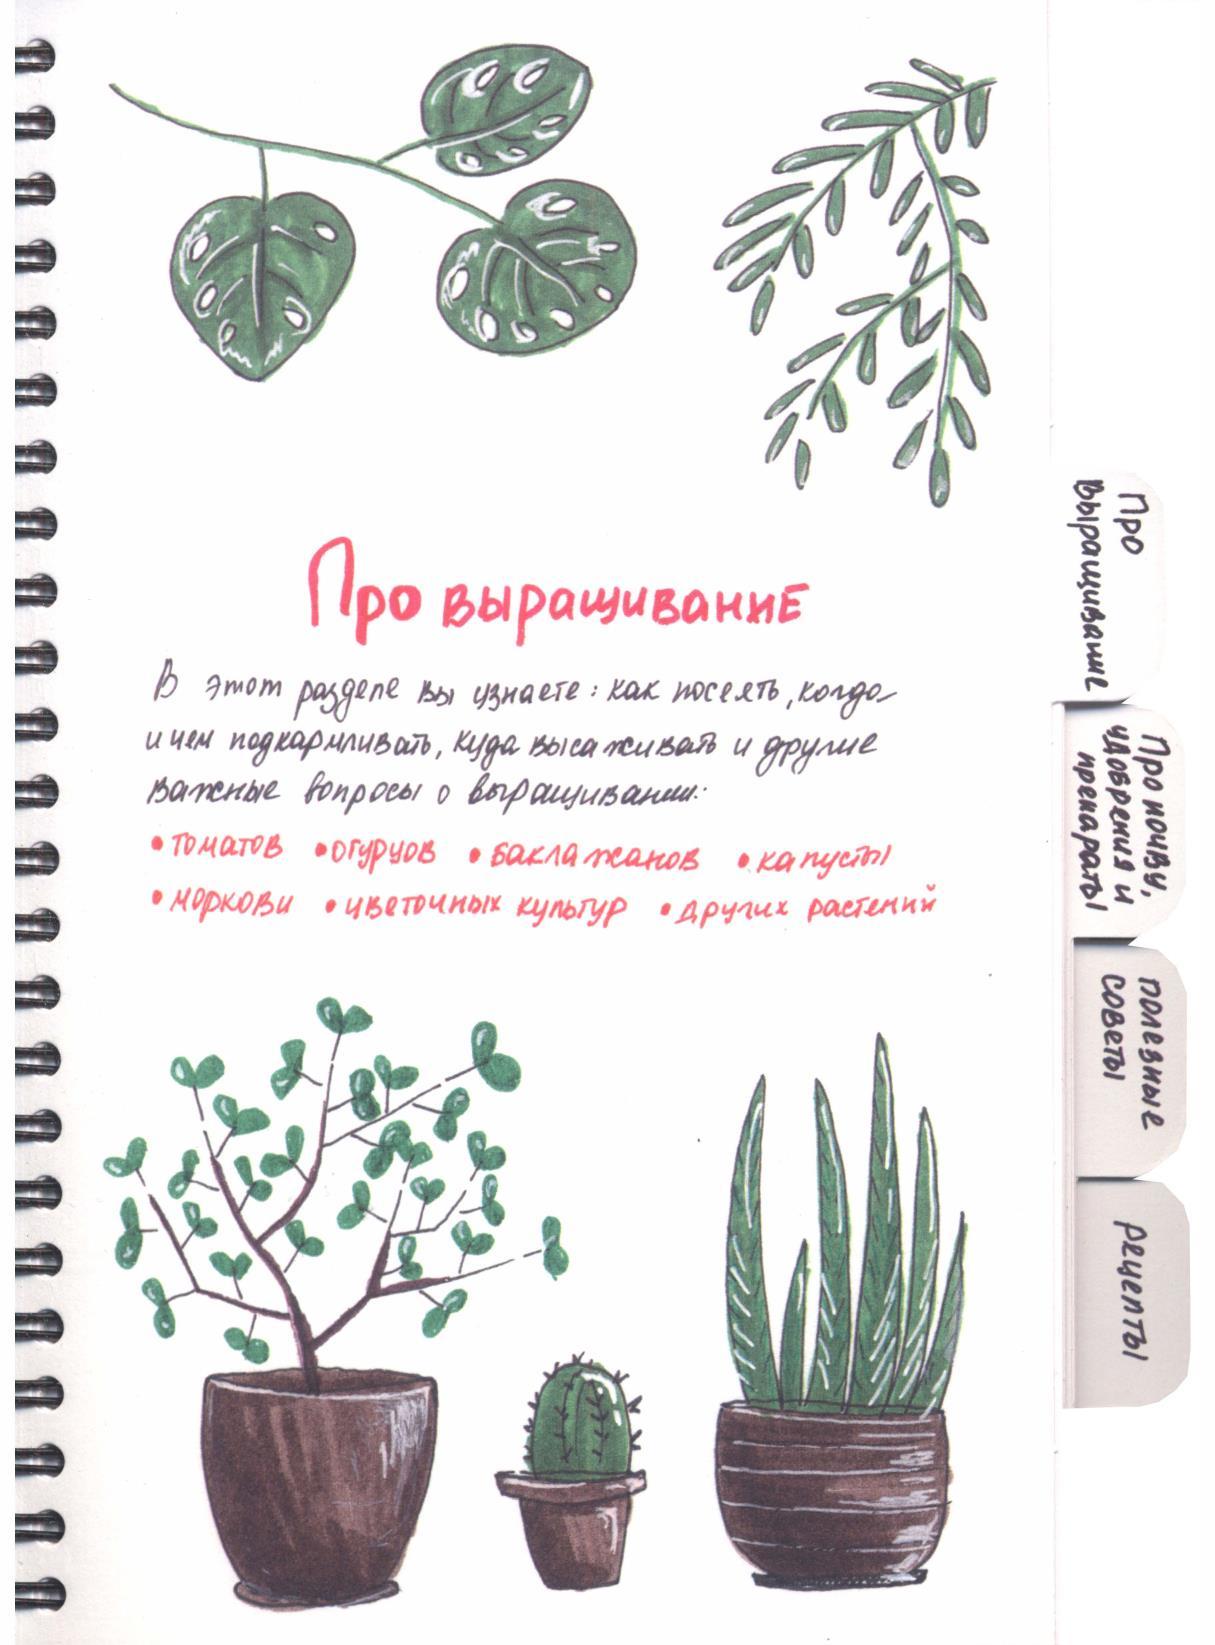 Про выращивание
В этом разделе вы узнаете: как посеять, когда
и чем подкармливать, куда высаживать и другие
важные вопросы о выращивании:
• томатов • огурцов • баклажанов • капусты
• моркови • цветочных культур • других растений
Про
выращивание
Про почву,
удобрения и
препараты
полезные
советы
рецепты